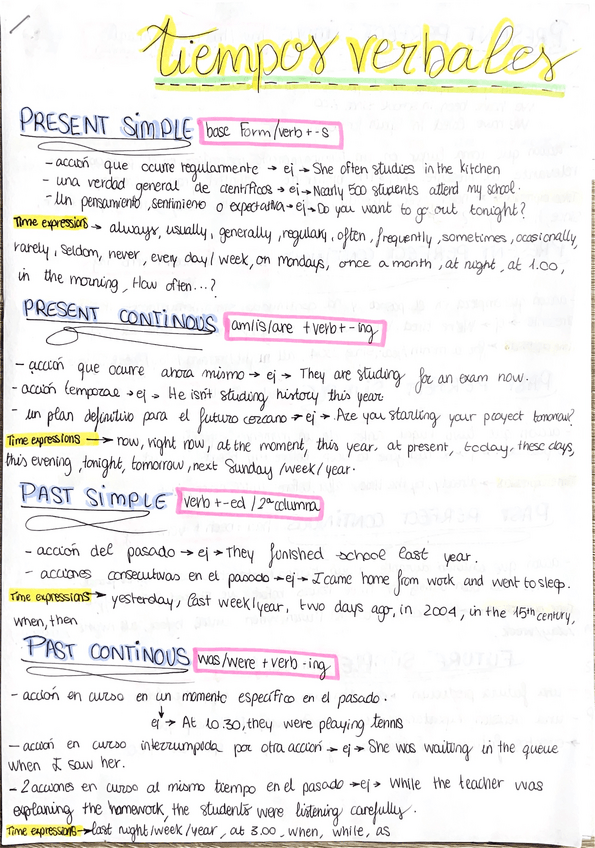 tiempos verbales
PRESENT SIMPLE base Form/verb + -s
- acción que ocurre regularmente → ej → She often studies in the kitchen
- una verdad general de científicos → ej → Nearly 500 students attend my school.
- Un pensamiento, sentimieno o expectativa → ej → Do you want to go out tonight?
Time expressions → always, usually, generally, regulary, often, frequently, sometimes, ocasionally,
rarely, seldom, never, every day/week, on mondays, once a month, at night, at 1.00,
in the morning, How often...?
PRESENT CONTINOUS am/is/are + verb + -ing
- acción que ocurre ahora mismo → ej → They are studing for an exam now.
- acción temporae → ej → He isn't studing history this year
- un plan definitivo para el futuro cercano → ej → Are you starling your proyect tomorrow?
Time expressions → now, right now, at the moment, this year, at present, today, these days,
this evening, tonight, tomorrow, next Sunday/week/year.
PAST SIMPLE verb + -ed / 2ª columna
- acción del pasado → ej → They finished school last year.
- acciones consecutivas en el pasado → ej → I came home from work and went to sleep.
Time expressions → yesterday, last week/year, two days ago, in 2004, in the 15th century,
when, then
PAST CONTINOUS was/were + verb -ing
- acción en curso en un momento específico en el pasado.
ej → At 10.30, they were playing tenns
- acción en curso interrumpida por otra acción → ej → She was waiting in the queue
when I saw her.
- 2 acciones en curso al mismo tiempo en el pasado → ej → While the teacher was
explaning the homework, the students were listening carefully.
Time expressions → last night/week/year, at 3.00, when, while, as